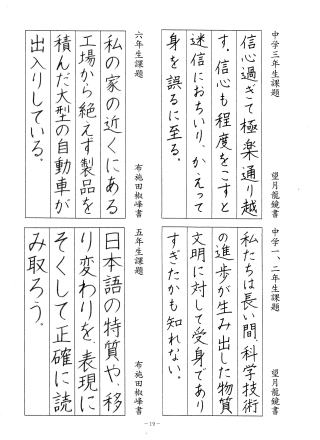 中学三年生課題
望月龍鏡書
信心過ぎて極楽通り越
す。信心も程度をこすと
迷信におちいり、かえって
身を誤るに至る。
中学一、二年生課題
望月龍鏡書
私たちは長い間科学技術
の進歩が生み出した物質
文明に対して受身であり
すぎたかも知れない。
六年生課題
布施田椒峰書
私の家の近くにある
工場から絶えず製品を
積んだ大型の自動車が
出入りしている。
五年生課題
布施田椒峰書
日本語の特質や、移
り変わりを、表現に
そくして正確に読
み取ろう。
—19—